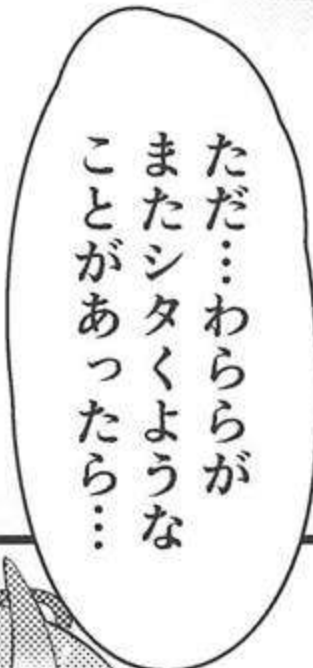 ただ…わららが
またシタくような
ことがあったら…